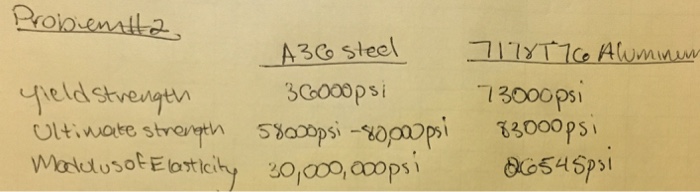 Problem #2
A36 steel 7178T76 Aluminum
yield strength 36000psi 73000psi
Ultimate strength 58000psi - 80,000psi 83000psi
Modulus of Elasticity 30,000,000psi 06545psi